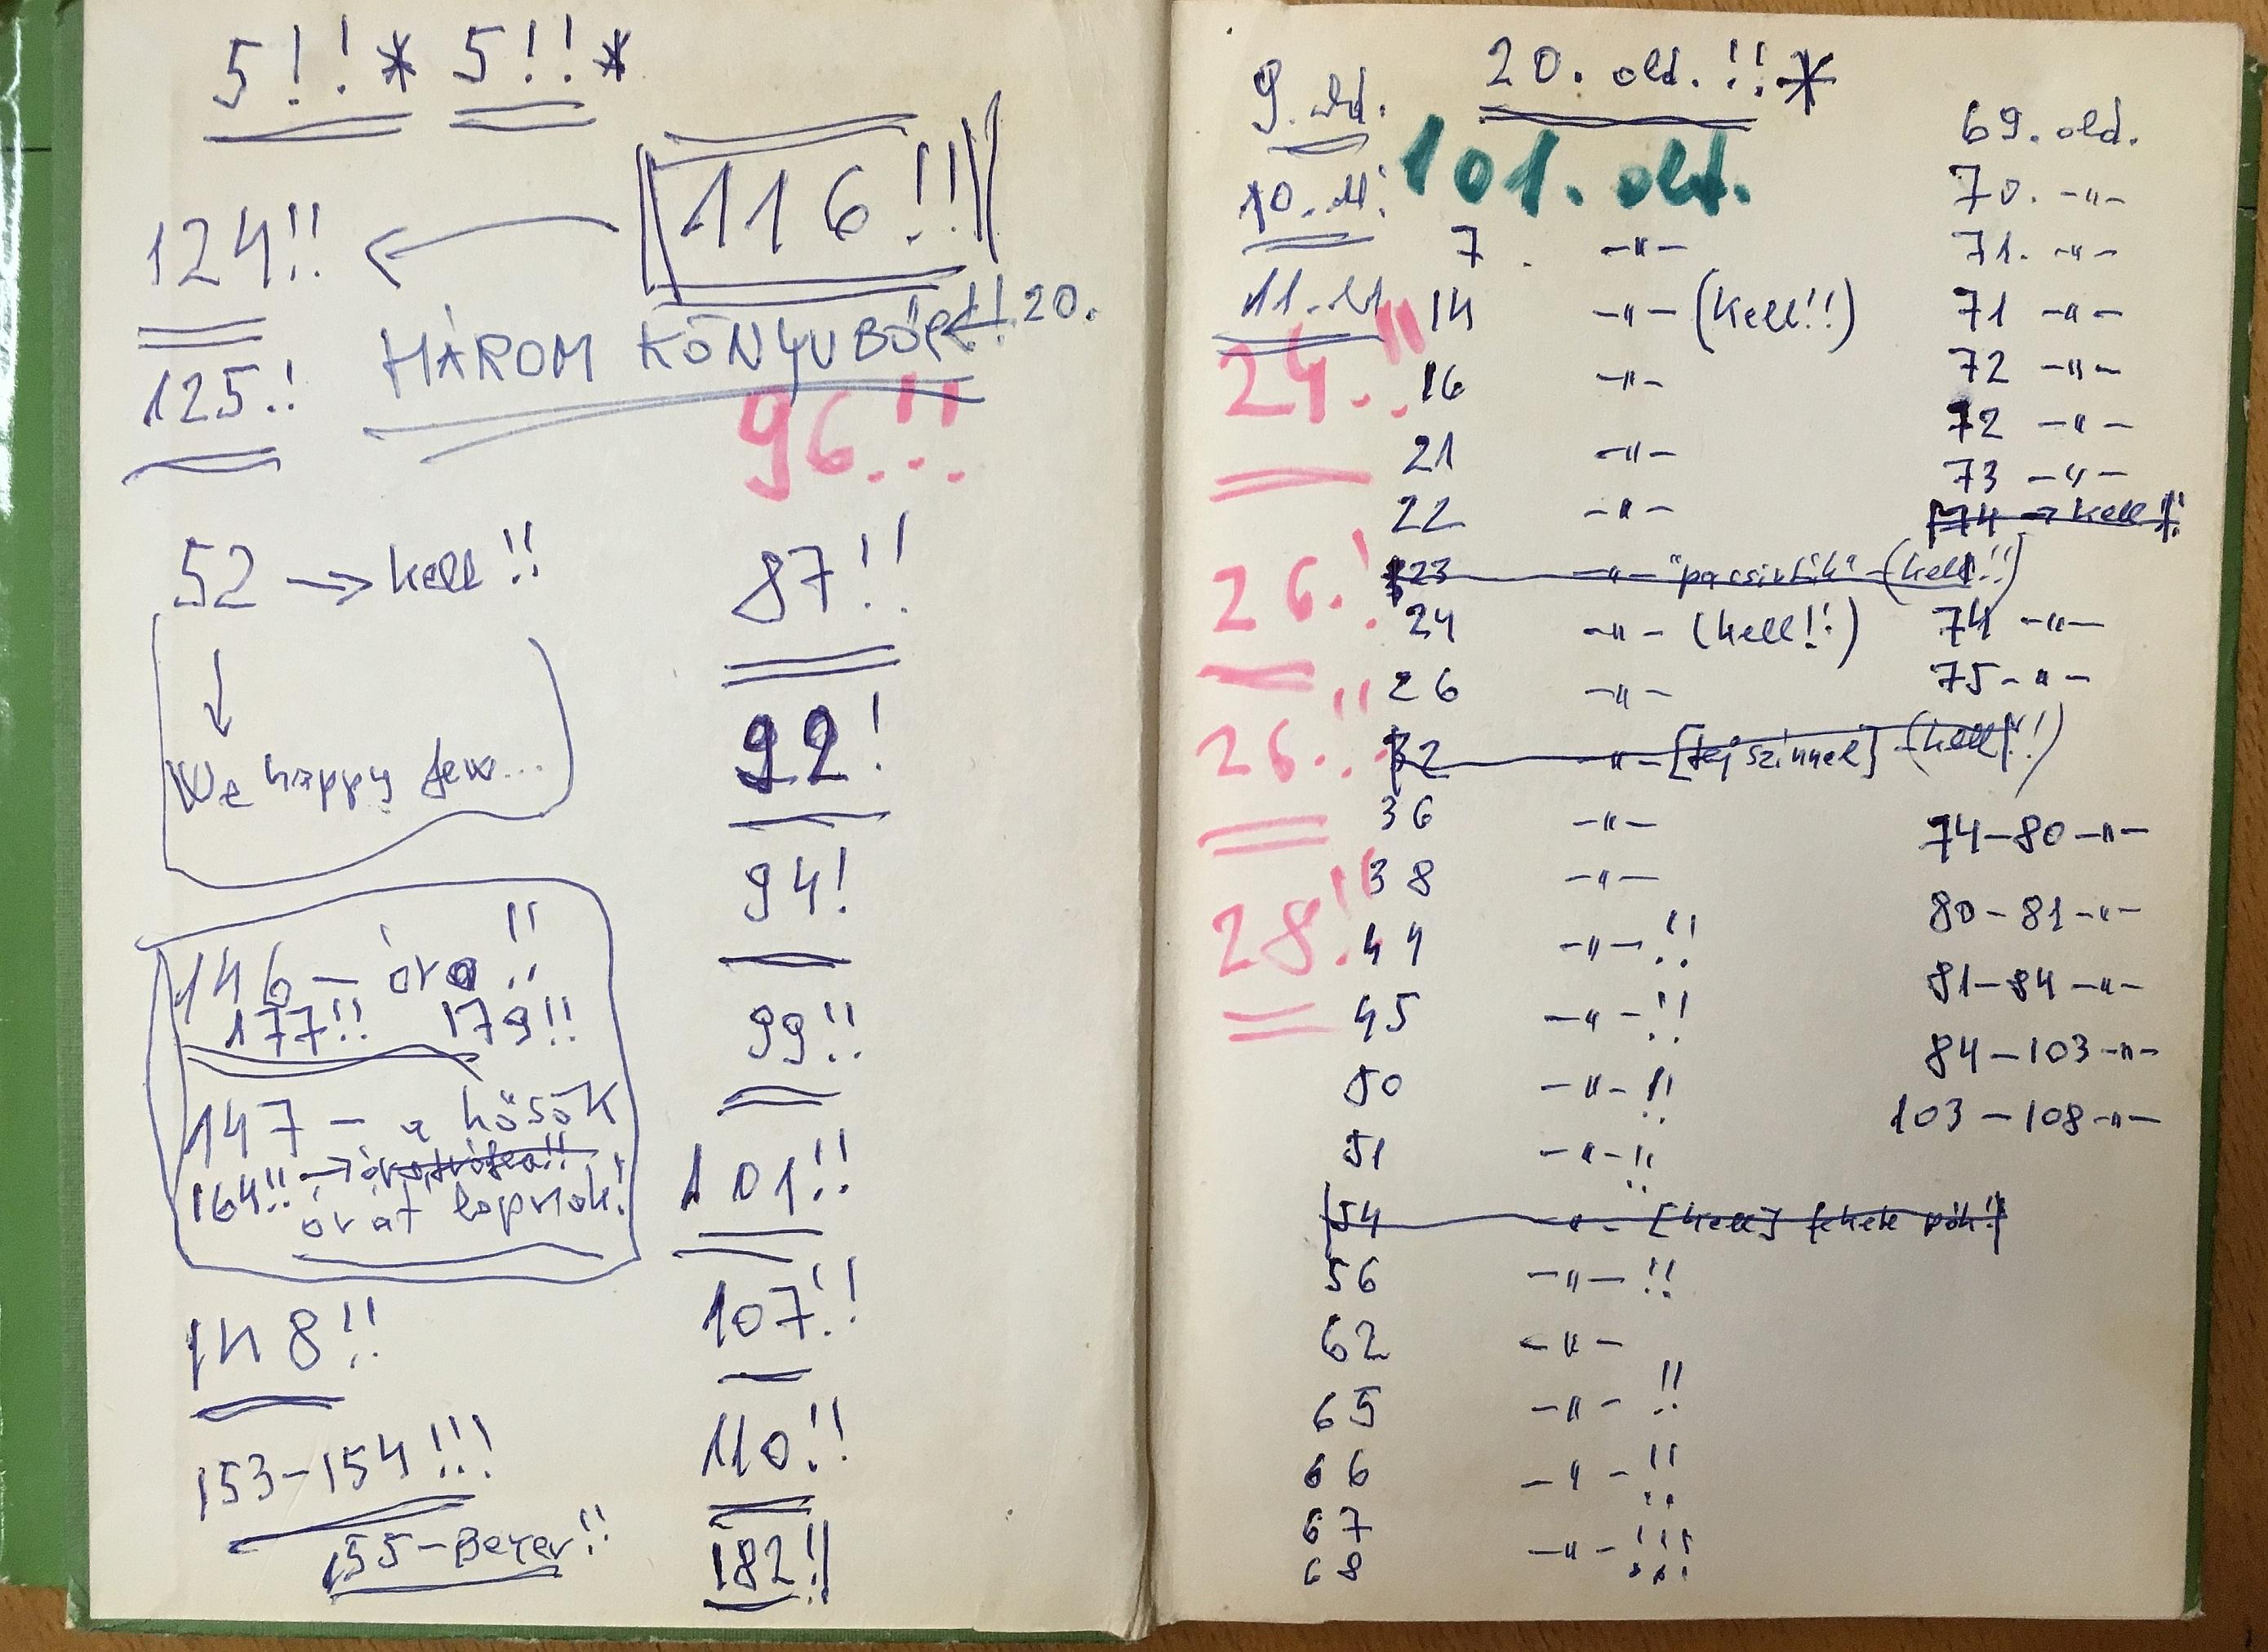 5!!* 5!!*
116!!
124!!
HÁROM KÖNYVBŐL! 20.
125!
96!!
52 → kell!!
87!!
We happy few...
92!
94!
146 – óra!!
177!! 179!!
99!!
147 – a hősök
164!! →
órát lopnak!
101!!
148!!
107!!
153–154!!!
110!!
155–Beyer!!
182!!
9. old. 20. old.!!*
10. old. 101. old.
11. old
24.!!
26.!
26.!!
28!!
7 –"–
14 –"– (kell!!)
16 –"–
21 –"–
22 –"–
23 –"– "passivtik" (kell!!)
24 –"– (kell!!)
26 –"–
32 –"– [tejszínnel] (kell!!)
36 –"–
38 –"–
44 –"–!!
45 –"–!!
50 –"–!!
51 –"–!!
54 –"– [kell] fekete pók!!
56 –"–!!
62 –"–
65 –"–!!
66 –"–!!
67
68 –"–!!!
69. old.
70. –"–
71. –"–
71 –"–
72 –"–
72 –"–
73 –"–
74 → kell!!
74 –"–
75 –"–
74–80 –"–
80–81 –"–
81–84 –"–
84–103 –"–
103–108 –"–